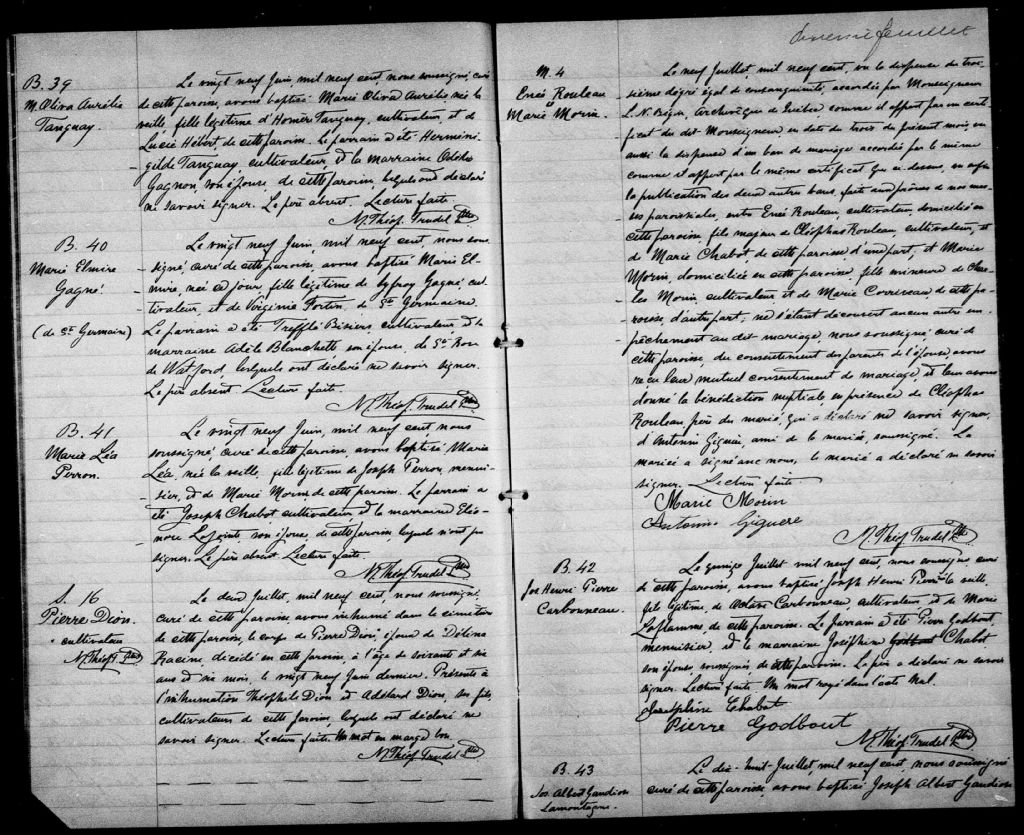 B. 39
M. Oliva Aurélie
Tanguay.
Le vingt neuf Juin, mil neuf cent, nous soussigné, curé
de cette paroisse, avons baptisé Marie Oliva Aurélie née la
veille, fille légitime d'Homère Tanguay, cultivateur, et de
Lucie Hébert, de cette paroisse. Le parrain a été Hermeni-
gilde Tanguay cultivateur et la marraine Odélie
Gagnon, son épouse, de cette paroisse, lesquels ont déclaré
ne savoir signer. Le père absent. Lecture faite.
N. Théof. Trudel Ptre
B. 40
Marie Elmire
Gagné
(de St. Germaine)
Le vingt neuf Juin, mil neuf cent, nous sous-
signé, curé de cette paroisse, avons baptisé Marie El-
mire, née ce jour, fille légitime de Gagné, cul-
tivateur, et de Virginie Fortin, de Ste Germaine.
Le parrain a été Trefflé cultivateur et la
marraine Adèle Blanchette son épouse, de Ste Rose
de Watford, lesquels ont déclaré ne savoir signer.
Le père absent. Lecture faite.
N. Théof. Trudel Ptre
B. 41
Marie Léa
Perron.
Le vingt neuf Juin, mil neuf cent nous
soussigné curé de cette paroisse, avons baptisé Marie
Léa, née la veille, fille légitime de Joseph Perron, menui-
sier, et de Marie Morin de cette paroisse. Le parrain a
été Joseph Chabot cultivateur et la marraine Eléo-
nore son épouse, de cette paroisse lesquels n'ont pu
signer. Le père absent. Lecture faite.
N. Théof. Trudel Ptre
S. 16
Pierre Dion.
cultivateur
N. Théof T. Ptre
Le deux Juillet, mil neuf cent, nous soussigné,
curé de cette paroisse, avons inhumé dans le cimetière
de cette paroisse, le corps de Pierre Dion, époux de Délina
Racine, décédé en cette paroisse, à l'âge de soixante et six
ans et six mois, le vingt neuf Juin dernier. Présents à
l'inhumation Théophile Dion et Adélard Dion, ses fils,
cultivateurs de cette paroisse, lesquels ont déclaré ne
savoir signer. Lecture faite. Un mot en marge bon.
N. Théof. Trudel Ptre
feuillet
M. 4
Enée Rouleau
et
Marie Morin.
Le neuf Juillet, mil neuf cent, vu la dispense du troi-
sième degré égal de consanguinité, accordée par Monseigneur
L. N. Bégin, Archevêque de Québec, comme il appert par un certi-
ficat du dit Monseigneur, en date du trois du présent mois, vu
aussi la dispense d'un ban de mariage accordée par le même
comme il appert par le même certificat que ci dessus, vu enfin
la publication des deux autres bans, faite aux prônes de nos mes-
ses paroissiales, entre Enée Rouleau, cultivateur, domicilié en
cette paroisse, fils majeur de Cléophas Rouleau, cultivateur, et
de Marie Chabot de cette paroisse, d'une part, et Marie
Morin, domiciliée en cette paroisse, fille mineure de Char-
les Morin, cultivateur et de Marie Corriveau, de cette pa-
roisse, d'autre part; ne s'étant découvert aucun autre em-
pêchement au dit mariage, nous soussigné curé de
cette paroisse, du consentement des parents de l'épouse, avons
reçu leur mutuel consentement de mariage, et leur avons
donné la bénédiction nuptiale en présence de Cléophas
Rouleau, père du marié, qui a déclaré ne savoir signer,
d'Antonio Giguère, ami de la mariée, soussigné. La
mariée a signé avec nous, le marié a déclaré ne savoir
signer. Lecture faite
Marie Morin
Antonio Giguere
N. Théof. Trudel Ptre
B. 42
Jos Henri Pierre
Carbonneau.
Le quinze Juillet mil neuf cent, nous soussigné, curé
de cette paroisse, avons baptisé Joseph Henri Pierre né la veille,
fils légitime, de Carbonneau, cultivateur, et de Marie
Laflamme, de cette paroisse. Le parrain a été Pierre Godbout,
menuisier, et la marraine Joséphine Godbout Chabot
son épouse soussignés de cette paroisse. Le père a déclaré ne savoir
signer. Lecture faite. Un mot rayé dans l'acte nul.
Josephine Chabot
Pierre Godbout
N. Théof. Trudel Ptre
B. 43
Jos Albert Gaudiose
Lamontagne.
Le dix-huit Juillet, mil neuf cent, nous soussigné
curé de cette paroisse, avons baptisé Joseph Albert Gaudiose